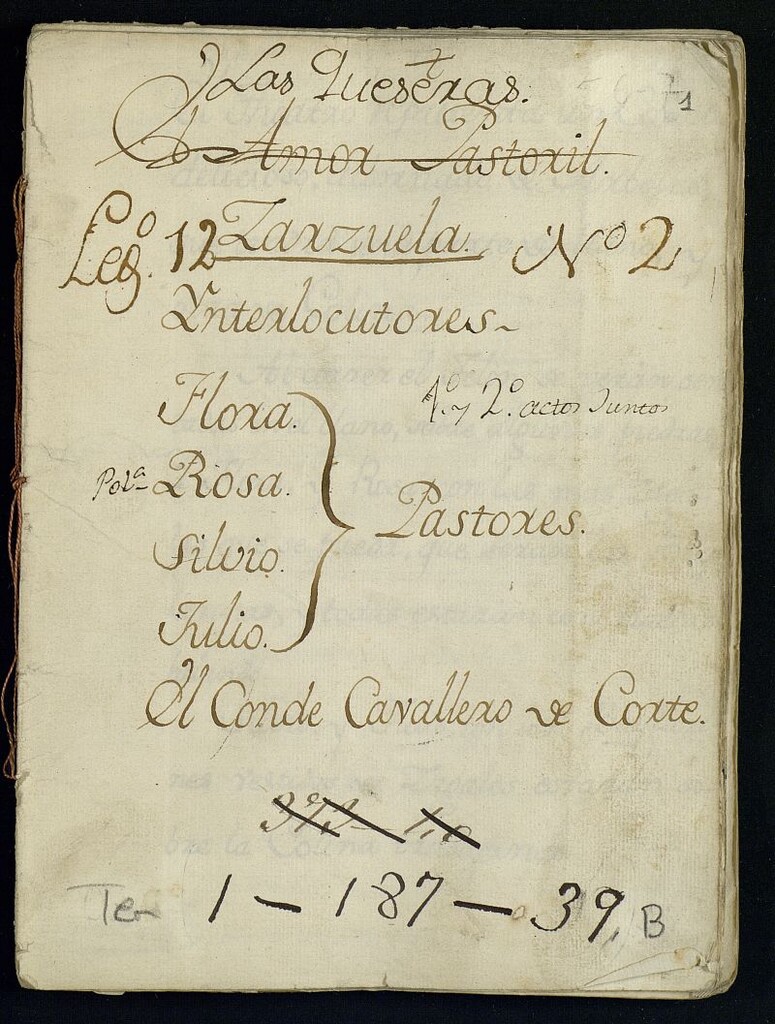 Las Queseras.
El Amor Pastoril.
Leg.º 12 Zarzuela. Nº 2
Ynterlocutores
Flora.
1º y 2º actos Juntos
Polª Rosa.
Pastores.
Silvio.
Julio.
El Conde Cavallero de Corte.
Tea 1 - 187 - 39, B
1